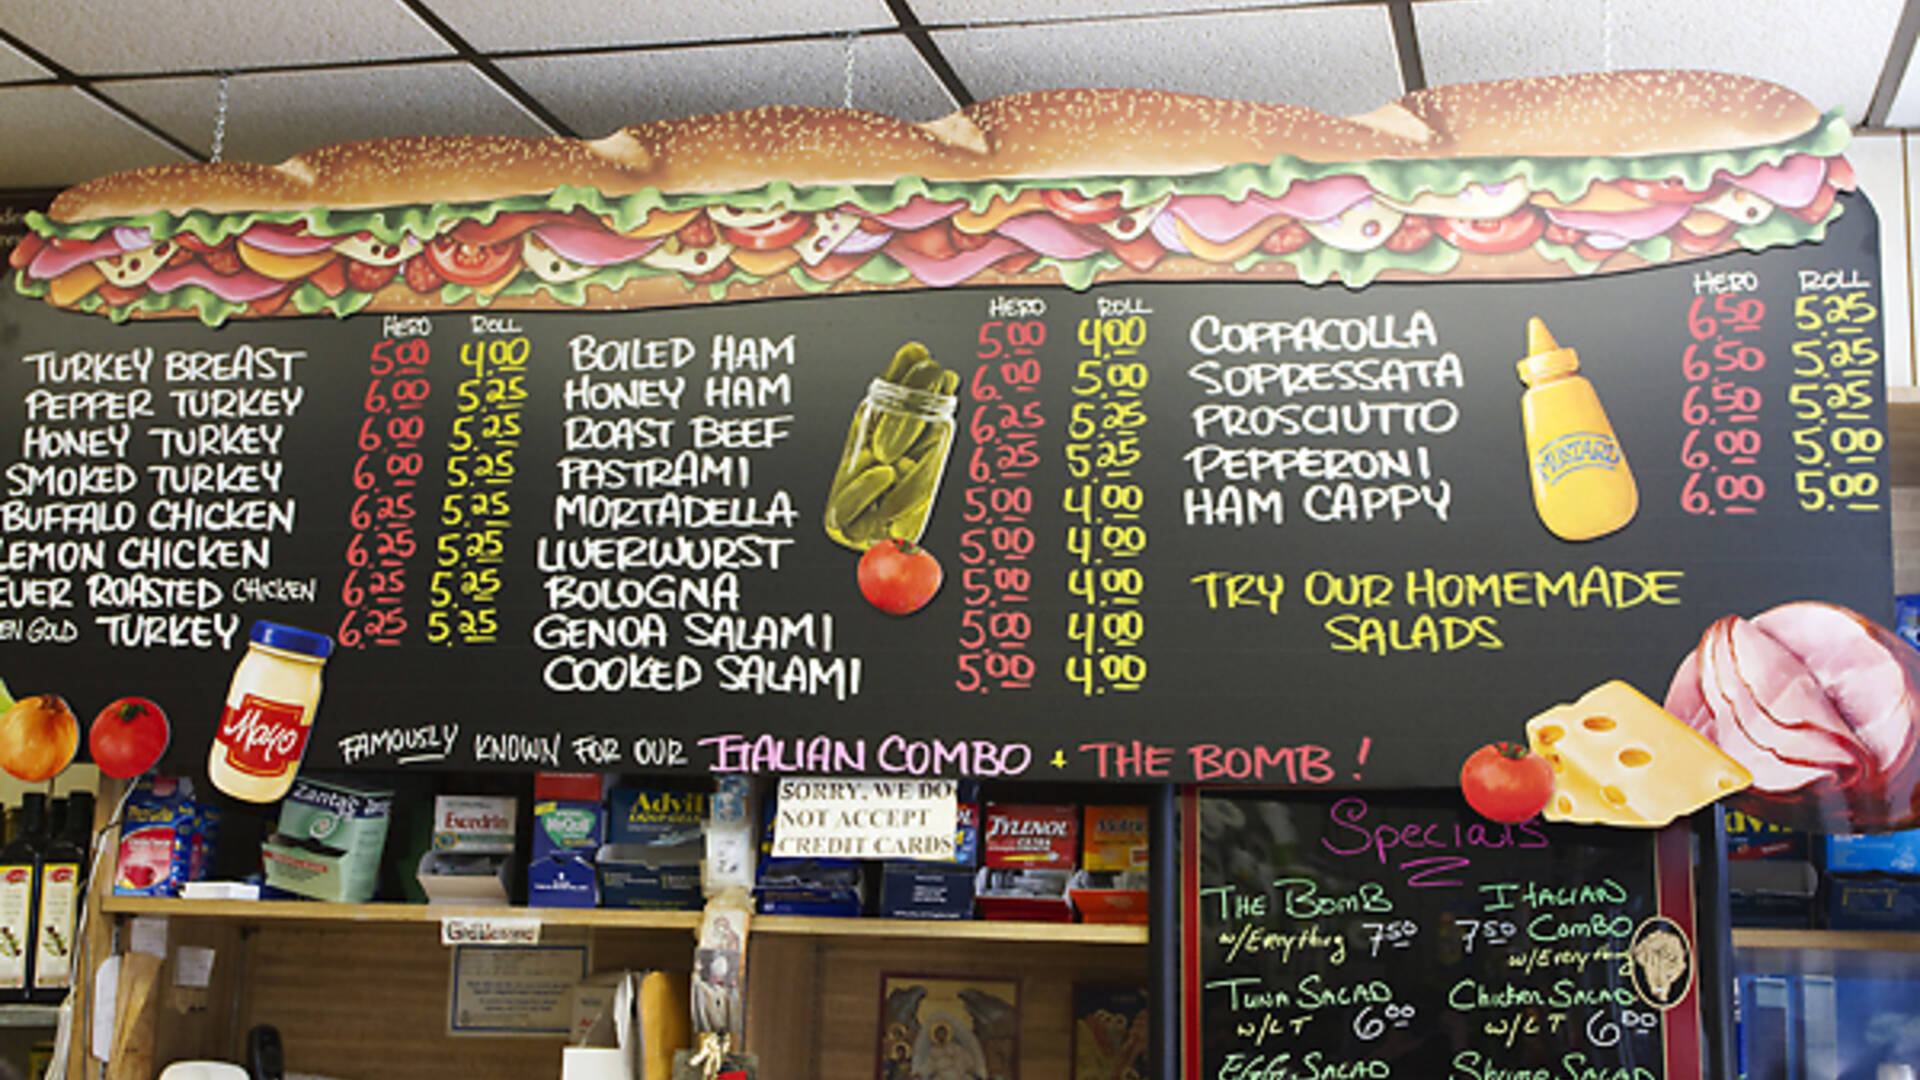 HERO ROLL
TURKEY BREAST 5.00 4.00
PEPPER TURKEY 6.00 5.25
HONEY TURKEY 6.00 5.25
SMOKED TURKEY 6.00 5.25
BUFFALO CHICKEN 6.25 5.25
LEMON CHICKEN 6.25 5.25
EVER ROASTED CHICKEN 6.25 5.25
EN GOLD TURKEY 6.25 5.25
Mayo
HERO ROLL
BOILED HAM 5.00 4.00
HONEY HAM 6.00 5.00
ROAST BEEF 6.25 5.25
PASTRAMI 6.25 5.25
MORTADELLA 5.00 4.00
LIVERWURST 5.00 4.00
BOLOGNA 5.00 4.00
GENOA SALAMI 5.00 4.00
COOKED SALAMI 5.00 4.00
HERO ROLL
COPPACOLLA 6.50 5.25
SOPRESSATA 6.50 5.25
PROSCIUTTO 6.50 5.25
PEPPERONI 6.00 5.00
HAM CAPPY 6.00 5.00
MUSTARD
TRY OUR HOMEMADE
SALADS
FAMOUSLY KNOWN FOR OUR ITALIAN COMBO + THE BOMB!
SORRY, WE DO
NOT ACCEPT
CREDIT CARDS
Zantac
Excedrin
NyQuil
Advil
TYLENOL
Motrin
Advil
God bless
Specials
THE BOMB
w/Everything 7.50
ITALIAN
7.50 COMBO
w/Everything
TUNA SALAD
w/LT 6.00
Chicken SALAD
w/LT 6.00
EGG SALAD
Shrimp SALAD